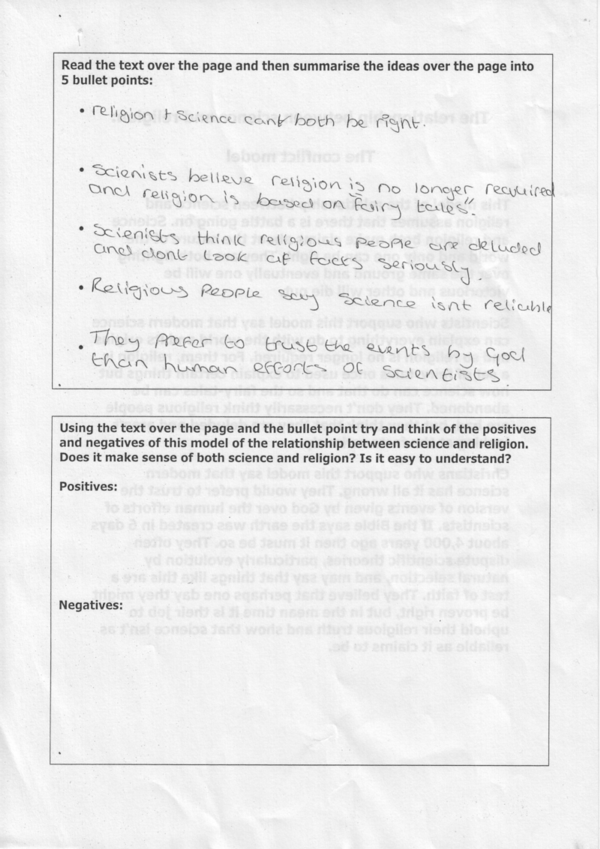 Read the text over the page and then summarise the ideas over the page into
5 bullet points:
• religion + science cant both be right.
• Scienists believe religion is no longer required
and religion is based on "fairy tales".
• Scienists think religious people are deluded
and dont look at facts seriously.
• Religious People say science isnt reliable
• They Prefer to trust the events by God
than human efforts of scientists.
Using the text over the page and the bullet point try and think of the positives
and negatives of this model of the relationship between science and religion.
Does it make sense of both science and religion? Is it easy to understand?
Positives:
Negatives: